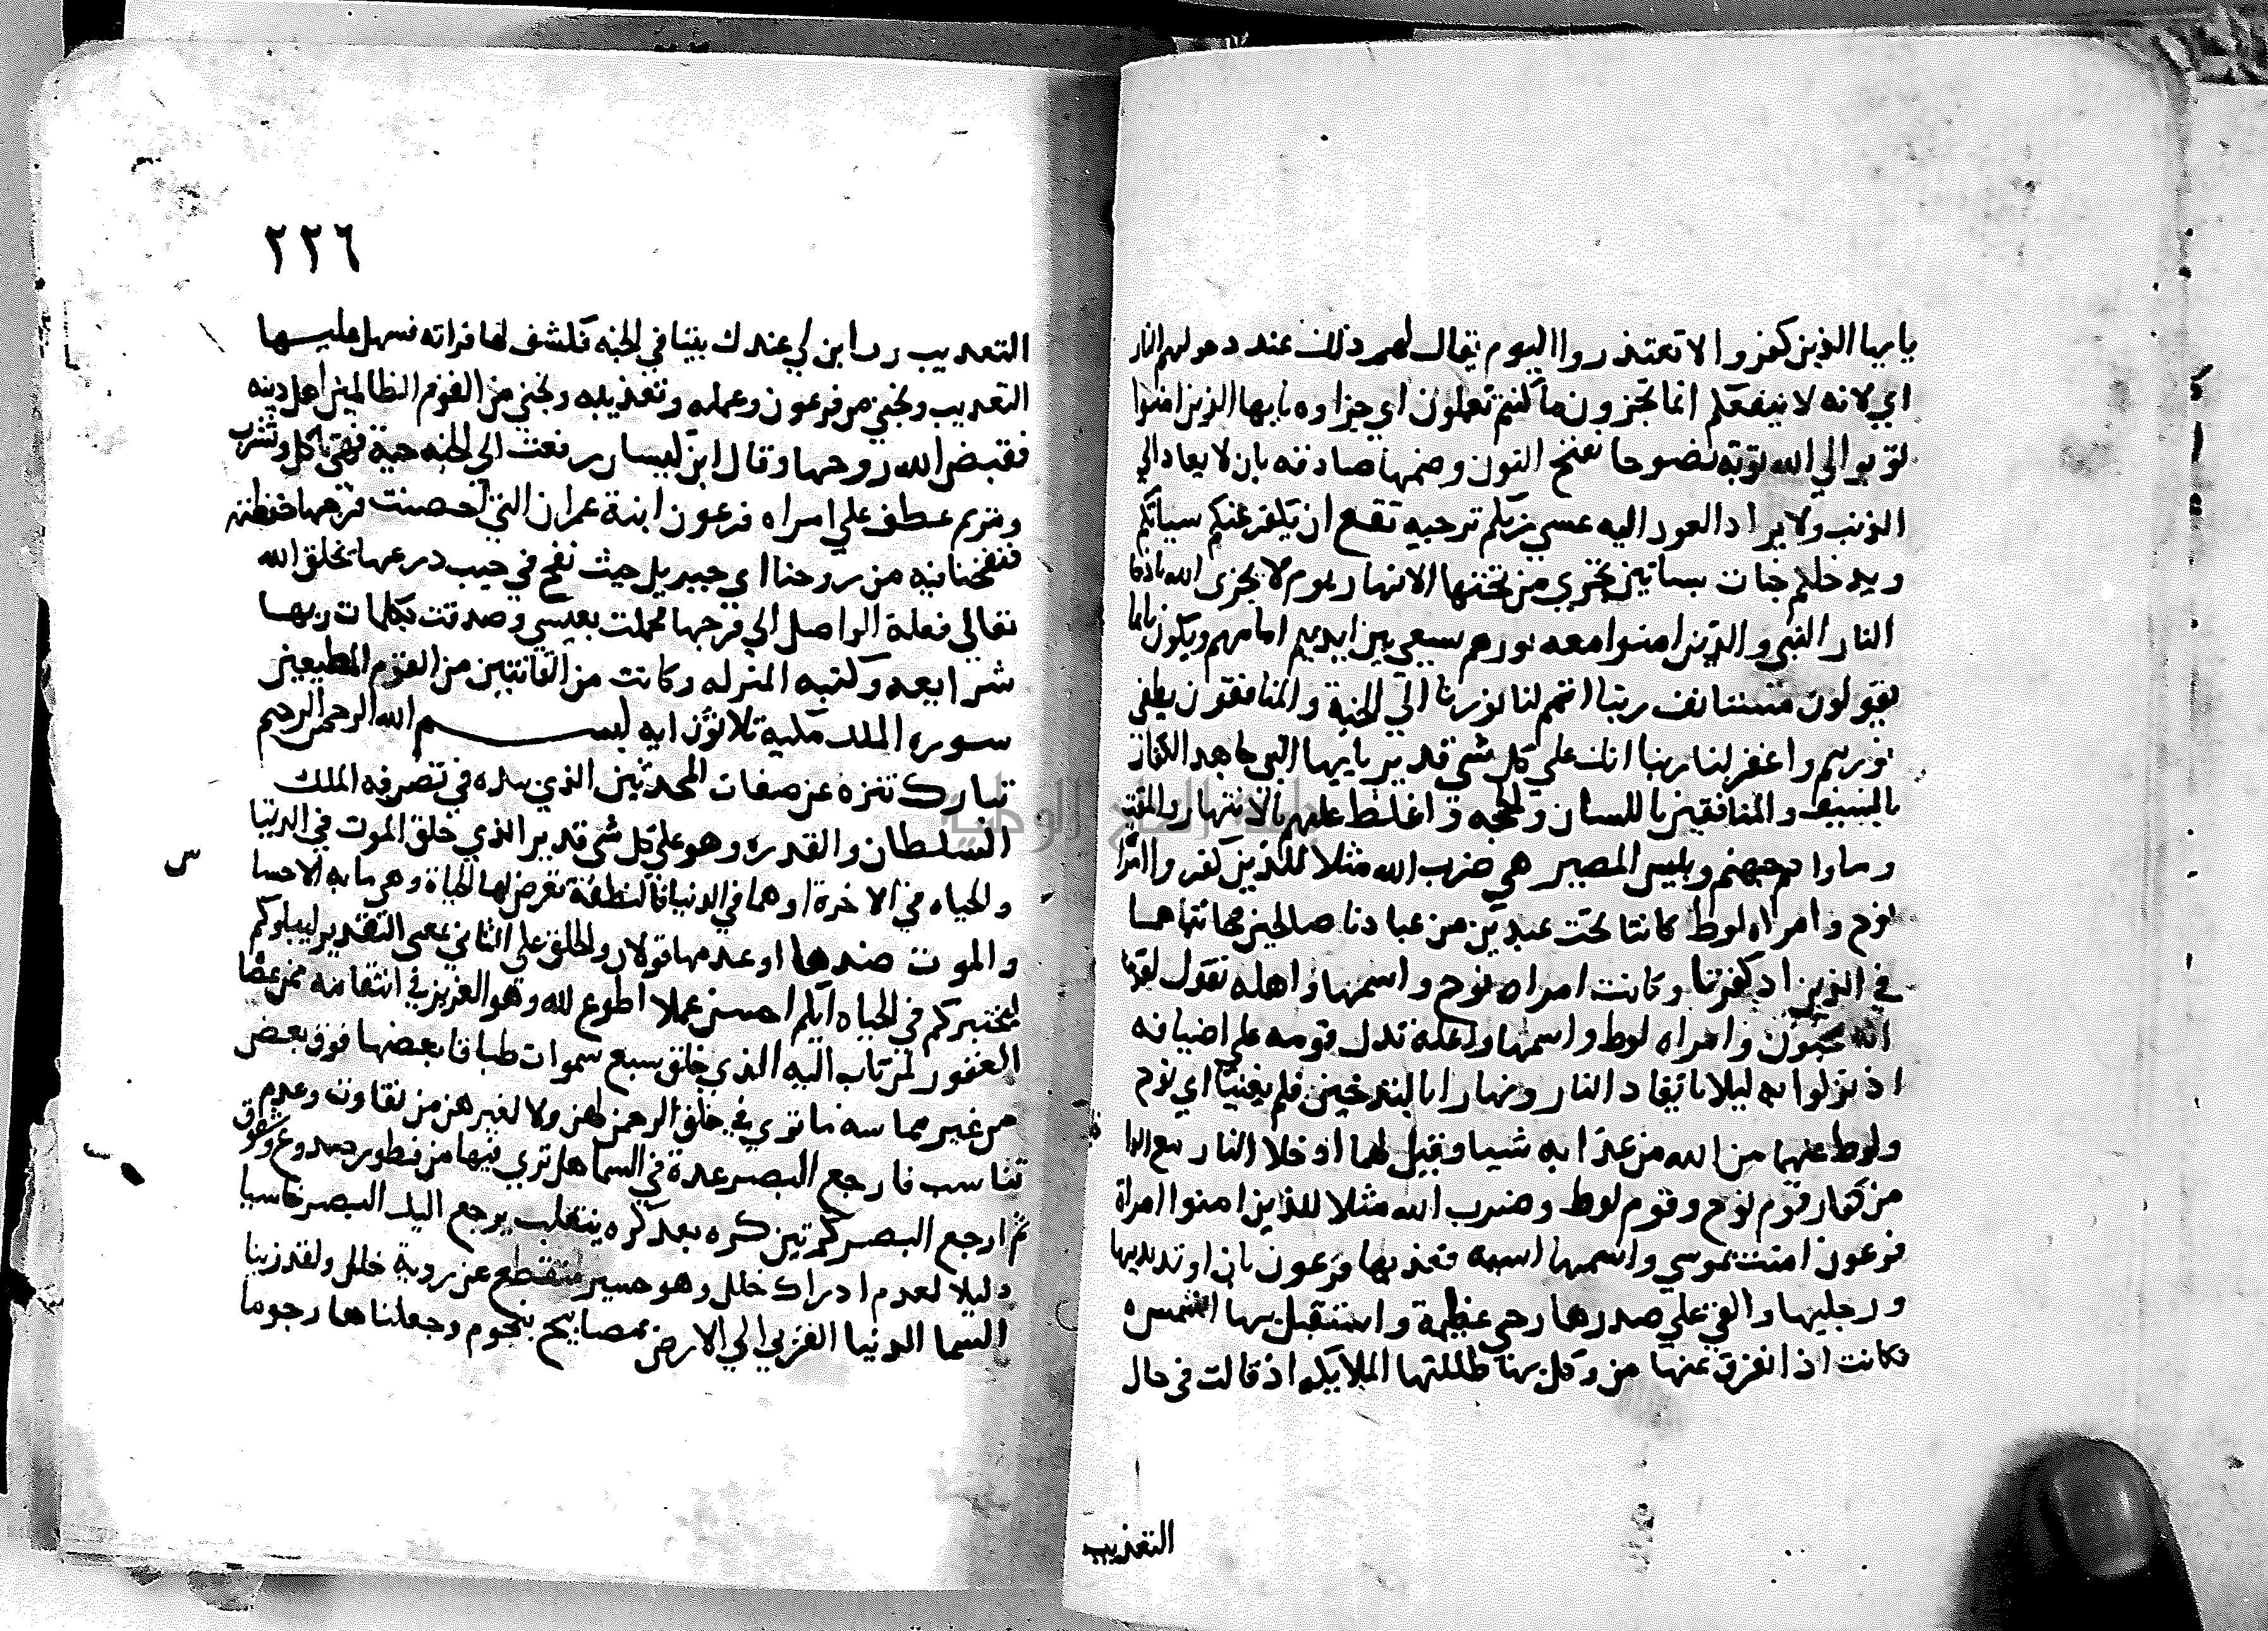 يايها الذين كفروا لا تعتذروا اليوم يقال لهم ذلك عند دخولهم النار
اي لانه لا ينفعكم انما تجزون ما كنتم تعملون اي جزاوه يايها الذين امنوا
توبوا الي الله توبة نصوحا بفتح النون وضمها صادقه بان لا يعاد الي
الذنب ولا يراد العود اليه عسي ربكم ترجيه تقع ان يكفر عنكم سياتكم
ويدخلكم جنات بساتين تجري من تحتها الانهار يوم لا يخزى الله بادخا
النار النبي والذين امنوا معه نورهم يسعي بين ايديهم امامهم ويكون بايما
يقولون مستانف ربنا اتمم لنا نورنا الي الجنة والمنافقون يطفي
نورهم واغفر لنا ربنا انك علي كل شي قدير يايها النبي جاهد الكفار
بالسيف والمنافقين باللسان والحجه واغلظ عليهم بالانتهار والمقت
وماواهم جهنم وبيس المصير هي ضرب الله مثلا للذين كفروا امرا
نوح وامراه لوط كانتا تحت عبدين من عبادنا صالحين فخانتاهما
في الدين اذ كفرتا وكانت امراه نوح واسمها واهله تقول لقومه
انه مجنون وامراه لوط واسمها واعلة تدل قومه علي اضيافه
اذ نزلوا به ليلا بايقاد النار ونهارا بالتدخين فلم يغنيا اي نوح
ولوط عنهما من الله من عذابه شيا وقيل لهما ادخلا النار مع الدا
من كفار قوم نوح وقوم لوط وضرب الله مثلا للذين امنوا امراة
فرعون امنت بموسي واسمها اسيه فعذبها فرعون بان اوتد يديها
ورجليها والقي علي صدرها رحي عظيمة واستقبل بها الشمس
فكانت اذا تفرق عنها من وكل بها ظللتها الملايكه اذ قالت في حال
التعذيب
٢٢٦
التعذيب رب ابن لي عندك بيتا في الجنه فكشف لها فراته فسهل عليها
التعذيب ونجني من فرعون وعمله وتعذيبه ونجني من القوم الظالمين اهل دينه
فقبض الله روحها وقال ابن كيسان رفعت الي الجنه حية فهي تاكل وتشرب
ومريم عطف علي امراه فرعون ابنة عمران التي احصنت فرجها حفظته
فنفخنا فيه من روحنا اي جبريل حيث نفخ في جيب درعها بخلق الله
تعالي فعله الواصل الي فرجها فحملت بعيسي وصدقت بكلمات ربها
شرايعه وكتبه المنزله وكانت من القانتين من القوم المطيعين
سوره الملك مكية ثلاثون ايه بسم الله الرحمن الرحيم
تبارك تنزه عن صفات المحدثين الذي بيده في تصرفه الملك
السلطان والقدره وهو علي كل شي قدير الذي خلق الموت في الدنيا
والحياه في الاخرة او هما في الدنيا فالنطفة تعرض لها الحياة وهي ما به الاحسا
س
والموت ضدها او عدمها قولان والخلق علي الثاني بمعني التقدير ليبلوكم
ليختبركم في الحياه ايكم احسن عملا اطوع لله وهو العزيز في انتقامه ممن عصا
الغفور لمن تاب اليه الذي خلق سبع سموات طباقا بعضها فوق بعض
من غير مماسه ما تري في خلق الرحمن لهن ولا لغيرهن من تفاوت وعدم
تناسب فارجع البصر عدة في السما هل تري فيها من فطور صدوع وشقوق
ثم ارجع البصر كرتين كره بعد كره ينقلب يرجع اليك البصر خاسيا
دليلا لعدم ادراك خلل وهو حسير منقطع عن روية خلل ولقد زينا
السما الدنيا القربي الي الارض بمصابيح بنجوم وجعلناها رجوما